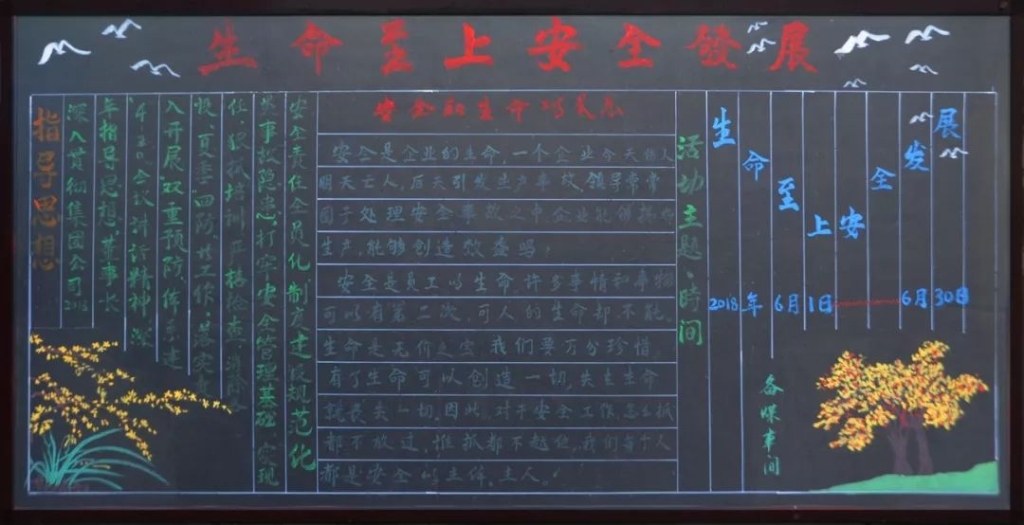 生命至上安全發展
指导思想
深入贯彻集团公司2018
年指导思想,董事长
会议讲话精神,深
入开展"双重预防"体系建
四防"工作,落实
狠抓培训,严格检查,消除
事故隐患,打牢安全管理基础,实现
安全责任全员化制度建设规范化
安全的生命
安全是企业的生命,一个企业今天伤人
明天亡人,后天引发生产事故,领导常常
处理安全事故之中企业
生产,能够创造效益吗,
安全是员工的生命,许多事情和事物
可以有第二次,可人的生命都不能,
生命是无价之宝,我们要万分珍惜,
有了生命可以创造一切,失去生命
就丧失一切,因此,对于安全工作,怎么抓
都不放过,谁抓都不越位,我们每个人
都是安全的主体,主人。
活动主题、时间
生命至上安全发展
2018年6月1日——6月30日
各煤車间